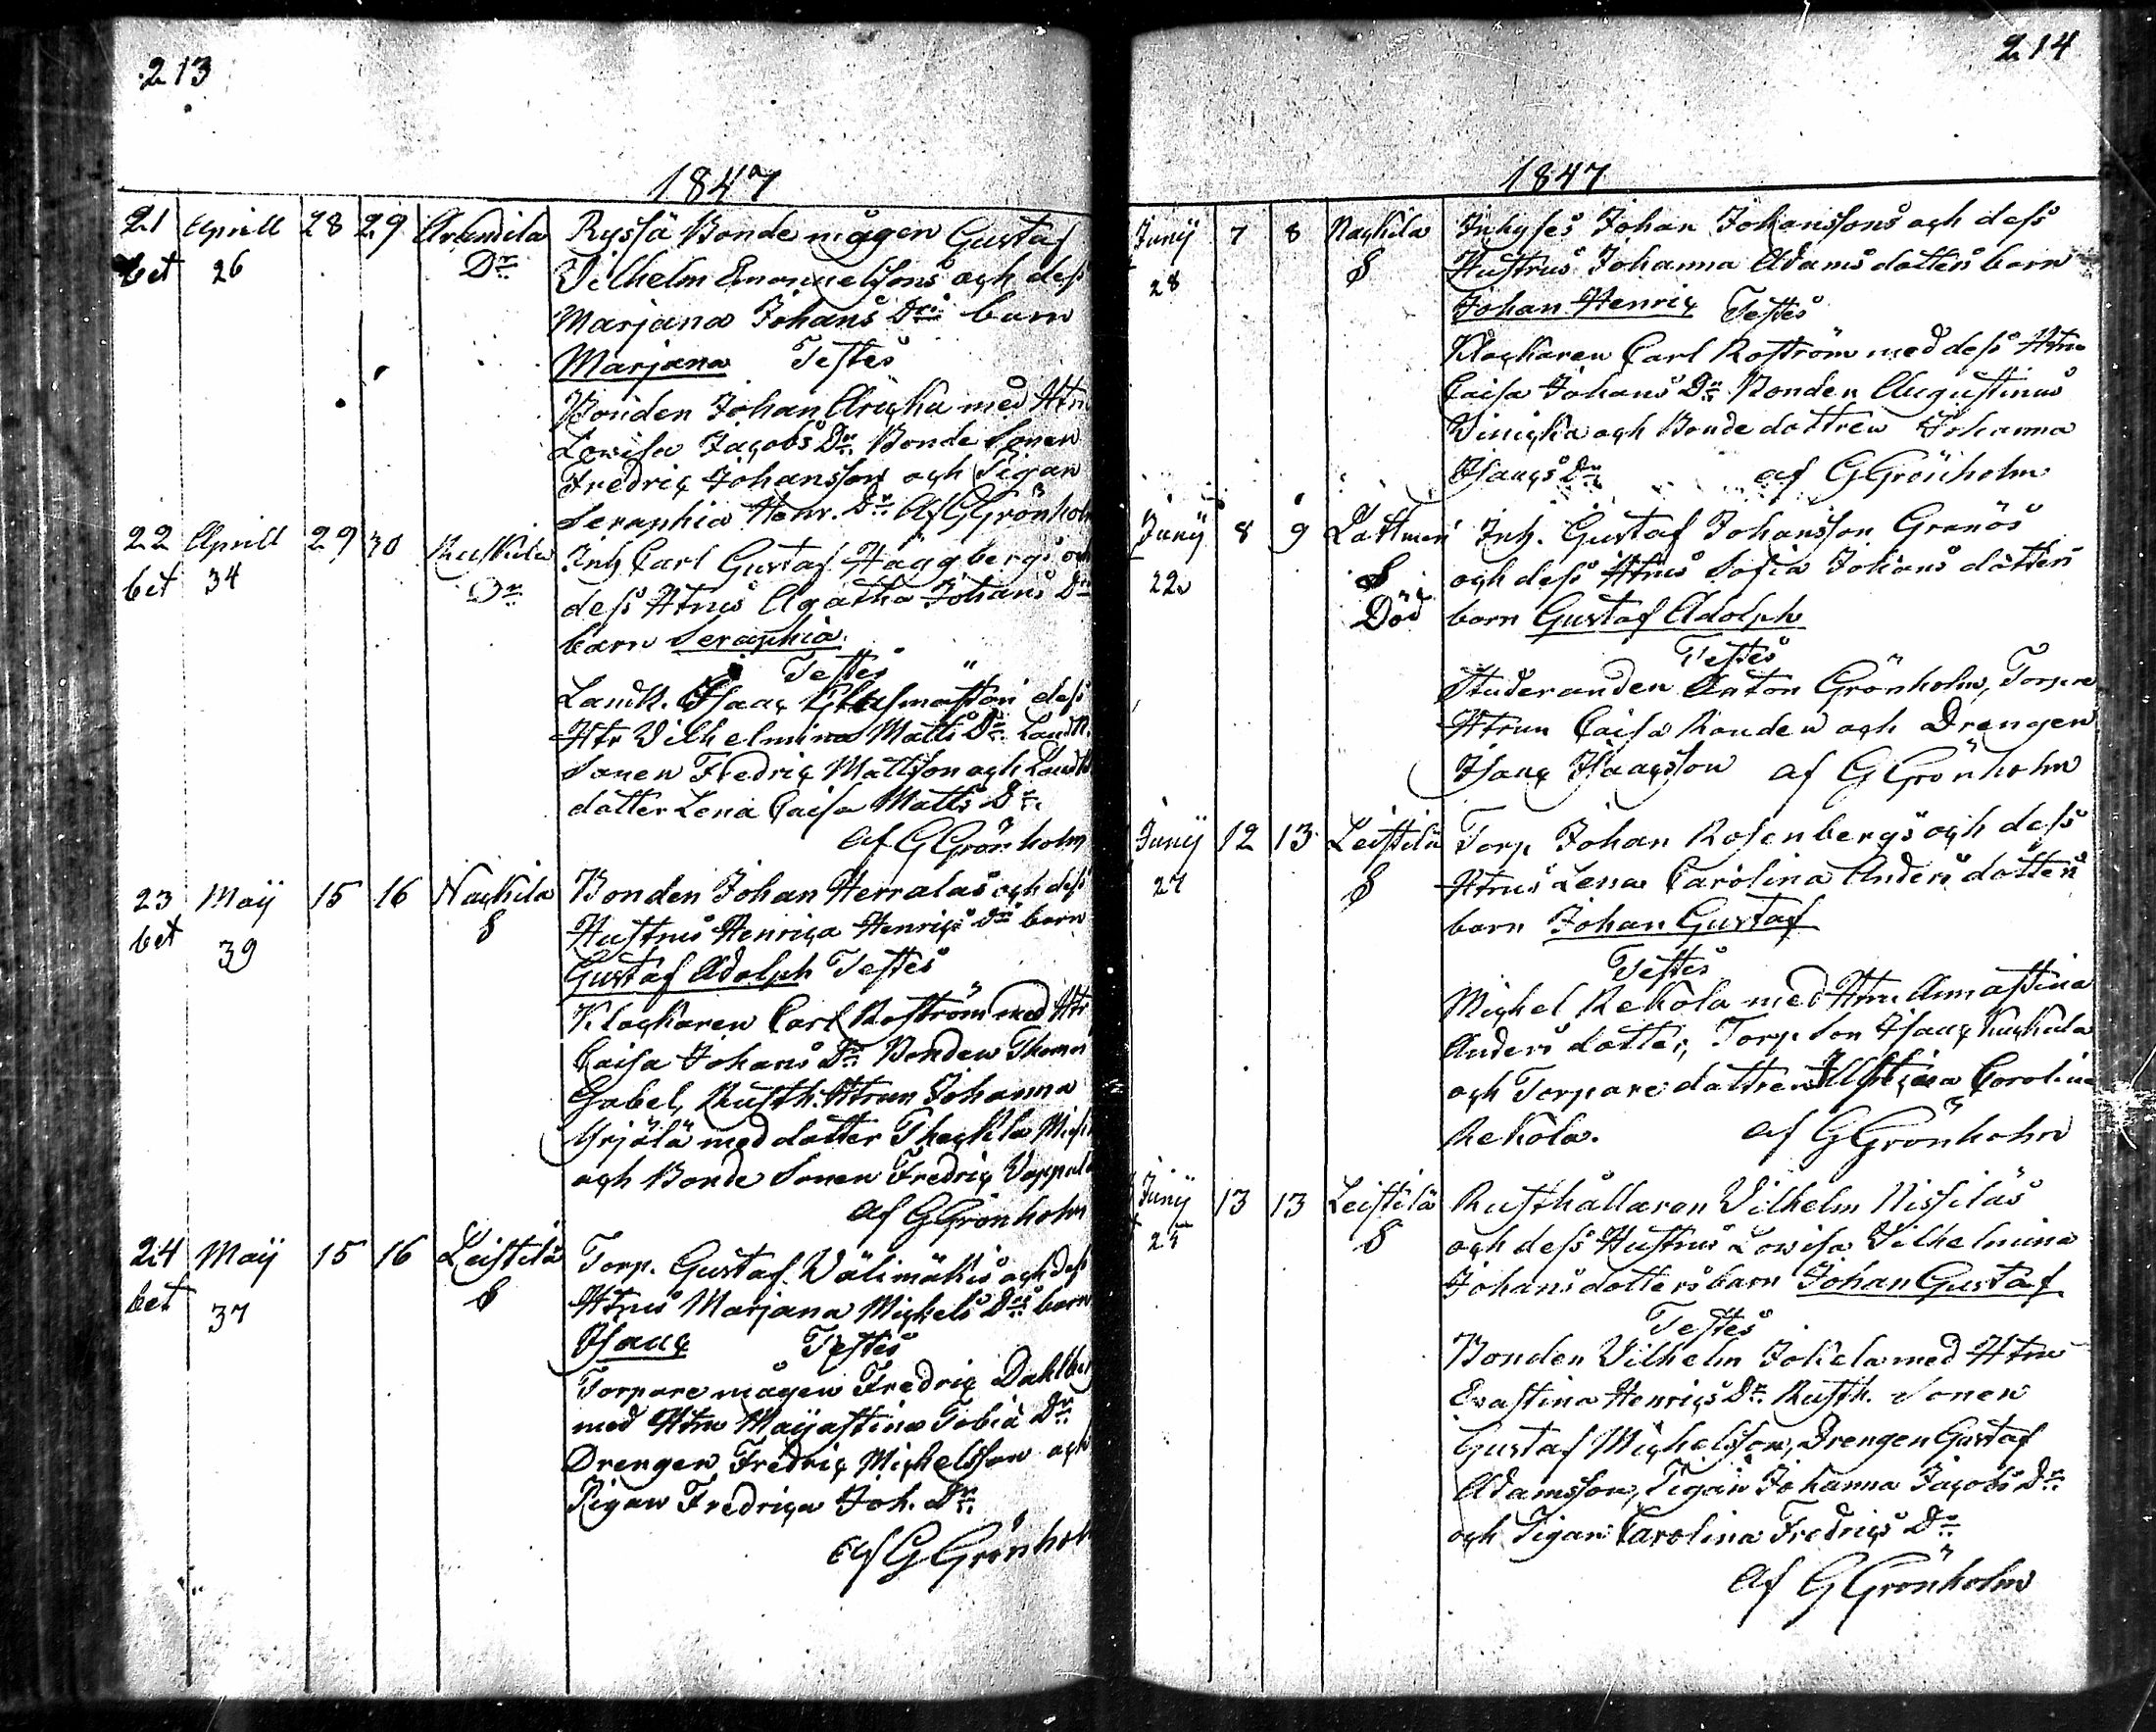 213
1847
21 Aprill 28 29 Arandila Ryssä Bonde mågen Gustaf
bet 26 Dr Vilhelm Emanuelssons och dess
Marjana Johans Drs barn
Marjana Testes
Bonden Johan med Htru
Lovisa Jacobs Dr Bonde Sonen
Fredric Johansson och Pigan
Seraphia Henr. Dr Af GGrönholm
22 Aprill 29 30 Inh Carl Gustaf Häggbergs och
bet 34 Dr dess Htrus Agatha Johans Drs
barn Seraphia
Testes
Landb. Isaac dess
Htr Vilhelmina Matts Dr Landb.
Sonen Fredric Mattsson och Landb
dotter Lena Caisa Matts Dr.
Af GGrönholm
23 Maij 15 16 Nackila Bonden Johan Herralas och dess
bet 39 S Hustrus Henrica Henrics Drs barn
Gustaf Adolph Testes
Klockaren Carl Roström med Htr
Caisa Johans Dr Bonden Thomas
Gabel, Rusth. Htrun Johanna
Yrjölä med dotter Theckla
och Bonde Sonen Fredric
Af GGrönholm
24 Maij 15 16 Leistilä Torp. Gustaf Välimäkis och dess
bet 37 S Htrus Marjana Michels Drs barn
Isaac Testes
Torpare mågen Fredric Dahlberg
med Htru Majastina Tobia Dr
Drengen Fredric Michelsson och
Pigan Fredrica Joh. Dr
Af GGrönholm
214
1847
Junij 7 8 Nackila Inhyses Johan Johanssons och dess
28 S Hustrus Johanna Adams dotters barn
Johan Henric Testes
Klockaren Carl Roström med dess Htru
Caisa Johans Dr Bonden Augustinus
Vinicka och Bonde dottren Johanna
Isaacs Dr af GGrönholm
Junij 8 9 Lattmeri Inh. Gustaf Johansson Granös
22 S och dess Htrus Sofia Johans dotters
Död barn Gustaf Adolph
Testes
Studeranden Anton Grönholm, Torpare
Htrun Caisa Randen och Drengen
Isaac Isaacsson af GGrönholm
Junij 12 13 Leistilä Torp Johan Rosenbergs och dess
27 S Htrus Lena Carolina Anders dotters
barn Johan Gustaf
Testes
Michel Rekola med Htru Annastina
Anders dotter, Torp. Son Isaac
och Torpare dottren Carolina
Rekola. af GGrönholm
Junij 13 13 Leistilä Rusthållaren Vilhelm Nissiläs
25 S och dess Hustrus Lovisa Vilhelmina
Johans dotters barn Johan Gustaf
Testes
Bonden Vilhelm Jokela med Htru
Evastina Henrics Dr Rusth. Sonen
Gustaf Michelsson, Drengen Gustaf
Adamsson, Pigan Johanna Jacobs Dr
och Pigan Carolina Fredrics Dr
Af GGrönholm